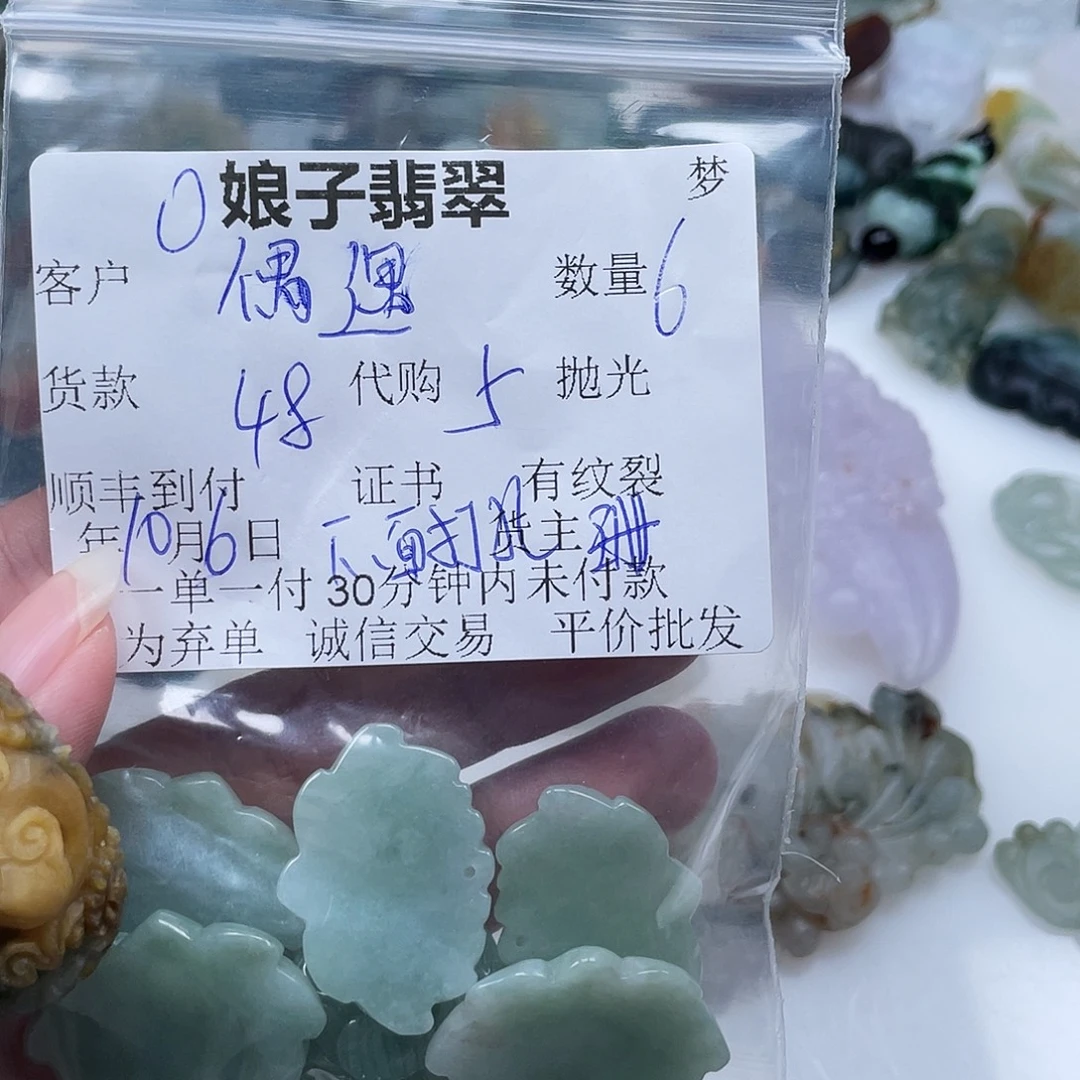 0 娘子翡翠 梦
客户 偶遇 数量 6
货款 48 代购 5 抛光
顺丰到付 证书 有纹裂
年10月6日 货主
一单一付 30分钟内未付款
为弃单 诚信交易 平价批发